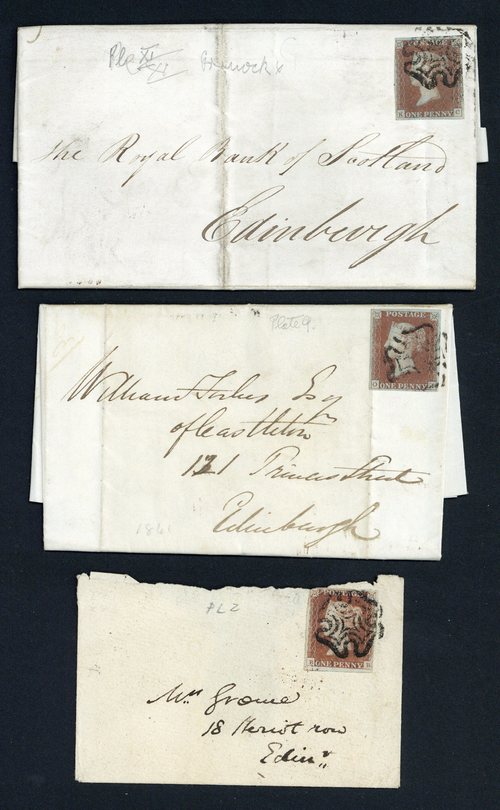 Ple XI
XI
Greenock x
POSTAGE
K
ONE PENNY
The Royal Bank of Scotland
Edinburgh
Plate 9.
POSTAGE
ONE PENNY
William Forbes Esqr
of Castleton
121 Princes Street
Edinburgh
1841
PL 2
POSTAGE
ONE PENNY
Mrs Græme
18 Heriot row
Edinr.